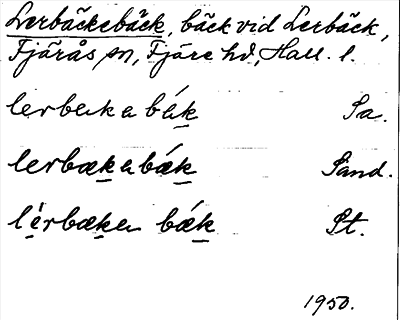 Lerbäckebäck, bäck vid Lerbäck,
Fjärås sn, Fjäre hd, Hall. l.
lerbækabǽk Sa.
lerbækabǽk Sand.
lérbæka bǽk St.
1950.